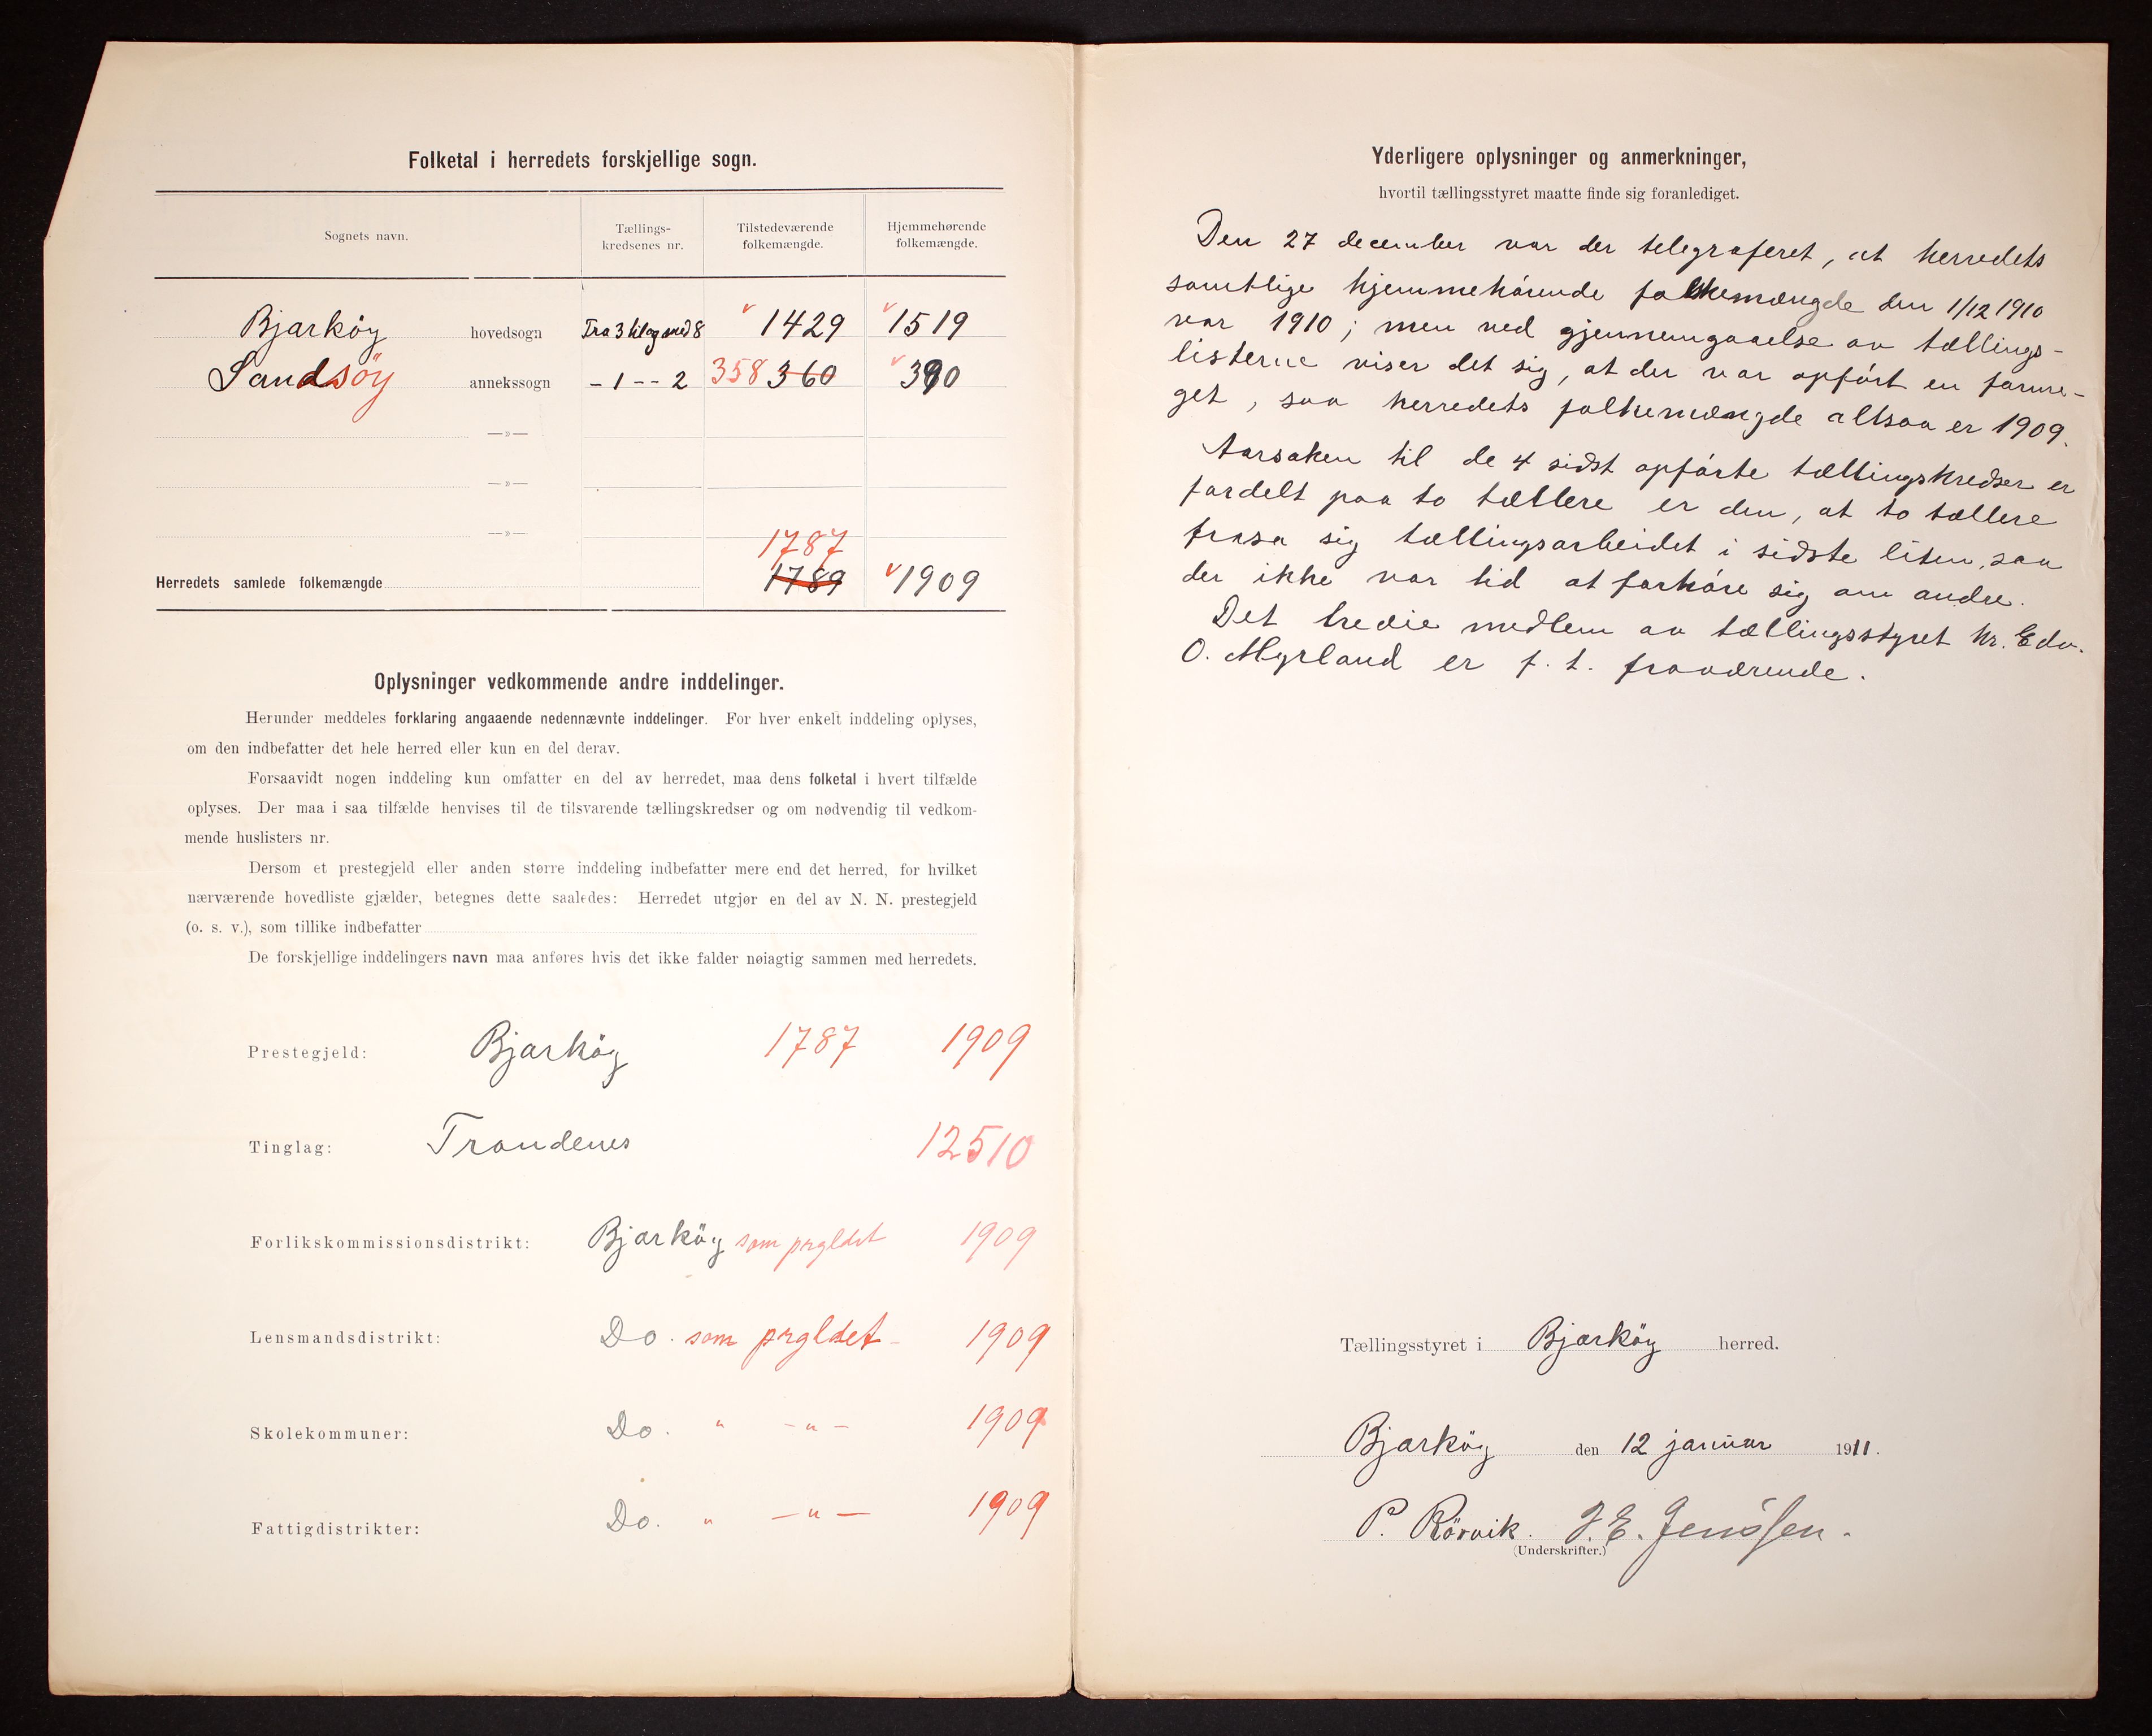 Folketal i herredets forskjellige sogn.
Sognets navn. Tællings- kredsenes nr. Tilstedeværende folkemængde. Hjemmehørende folkemængde.
Bjarköy hovedsogn Fra 3 til og med 8 v 1429 v 1519
Sandsöy annekssogn – 1 – – 2 358 360 v 390
—»—
—»—
—»—
1787
Herredets samlede folkemængde 1789 v 1909
Oplysninger vedkommende andre inddelinger.
Herunder meddeles forklaring angaaende nedennævnte inddelinger. For hver enkelt inddeling oplyses,
om den indbefatter det hele herred eller kun en del derav.
Forsaavidt nogen inddeling kun omfatter en del av herredet, maa dens folketal i hvert tilfælde
oplyses. Der maa i saa tilfælde henvises til de tilsvarende tællingskredser og om nødvendig til vedkom-
mende huslisters nr.
Dersom et prestegjeld eller anden større inddeling indbefatter mere end det herred, for hvilket
nærværende hovedliste gjælder, betegnes dette saaledes: Herredet utgjør en del av N. N. prestegjeld
(o. s. v.), som tillike indbefatter
De forskjellige inddelingers navn maa anføres hvis det ikke falder nøiagtig sammen med herredets.
Prestegjeld: Bjarköy 1787 1909
Tinglag: Trondenes 12510
Forlikskommissionsdistrikt: Bjarköy som prgldet 1909
Lensmandsdistrikt: Do. som prgldet – 1909
Skolekommuner: Do. " –"– 1909
Fattigdistrikter: Do. " –"– 1909
Yderligere oplysninger og anmerkninger,
hvortil tællingsstyret maatte finde sig foranlediget.
Den 27 december var der telegraferet, at herredets
samtlige hjemmehörende folkemængde den 1/12 1910
var 1910; men ved gjennemgaaelse av tællings-
listerne viser det sig, at der var opfört en forme-
get, saa herredets folkemængde altsaa er 1909.
Aarsaken til de 4 sidst opförte tællingskredser er
fordelt paa to tællere er den, at to tællere
frasa sig tællingsarbeidet i sidste liten, saa
der ikke var tid at forhöre sig om andre.
Det tredie medlem av tællingsstyret hr. Edv.
O. Myrland er f. t. fraværende.
Tællingsstyret i Bjarköy herred.
Bjarköy den 12 januar 1911.
P. Rörvik. J. E. Jenssen.
(Underskrifter.)